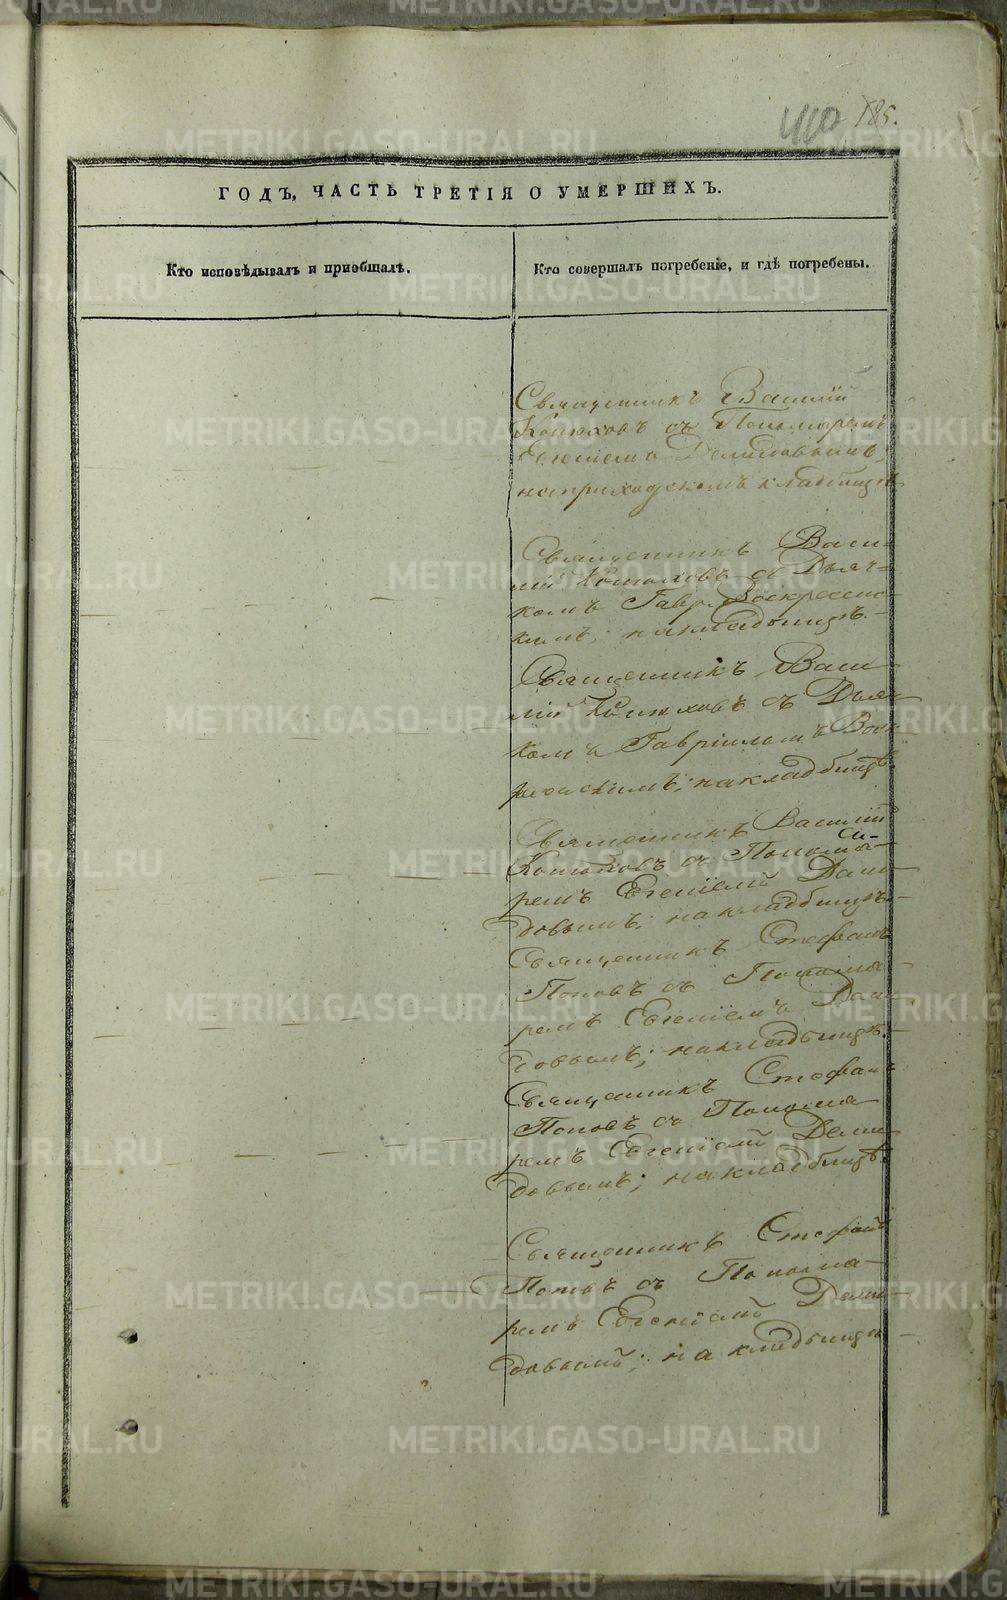 410 185.
ГОДЪ, ЧАСТЬ ТРЕТІЯ О УМЕРШИХЪ.
Кто исповѣдывалъ и приобщалъ.
Кто совершалъ погребеніе, и гдѣ погребены.
Священникъ Василій
Конюховъ съ Пономаремъ
Евгеніемъ Демидовымъ;
на приходскомъ кладбищѣ
Священникъ Васи-
лій Конюховъ съ Дьяч-
комъ Гавр. Воскресенс-
кимъ; на кладбищѣ.
Священникъ Васи-
лій Конюховъ съ Дьяч-
комъ Гавріиломъ Воск-
ресенскимъ; на кладбищѣ.
Священникъ Василій
Конюховъ съ Понома-
ремъ Евгеніемъ Деми-
довымъ; на кладбищѣ.
Священникъ Стефанъ
Поповъ съ Понома-
ремъ Евгеніемъ Деми-
довымъ; на кладбищѣ.
Священникъ Стефанъ
Поповъ съ Понома-
ремъ Евгеніемъ Деми-
довымъ; на кладбищѣ.
Священникъ Стефанъ
Поповъ съ Понома-
ремъ Евгеніемъ Деми-
довымъ; на кладбищѣ
METRIKI.GASO-URAL.RU